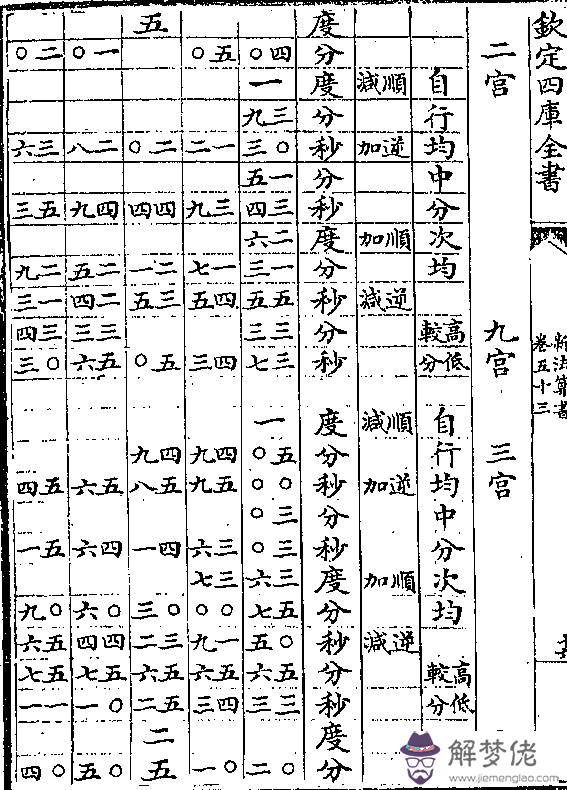 欽定四庫全書
新法算書
卷五十三
二宮 九宮 三宮
自行均中分次均 高低較分 自行均中分次均 高低較分
順減 逆加 順加 逆減 順減 逆加 順加 逆減
度分度分秒分秒度分秒分秒 度分秒分秒度分秒分秒度分
四〇 一 三九 〇三 一五 三四 二六 一三 五五 三三 三七 一 五〇 〇〇 三〇 三〇 三六 五七 〇五 五六 三三 二〇
五〇 一二 三九 一七 四五 四三 四九 五九 三六 三七 〇〇 一九 五六 四三 一〇
五 二〇 四四 二一 三五 五〇 四九 五八 四一 〇三 三二 五六 五二 二 五
一〇 二八 四九 二五 二四 三三 五六 五六 四六 〇六 四四 五七 〇一 五〇
二〇 三六 五三 二九 一三 三四 〇三 五四 五一 〇九 五六 五七 一一 四〇
解梦佬
www.jiemenglao.com